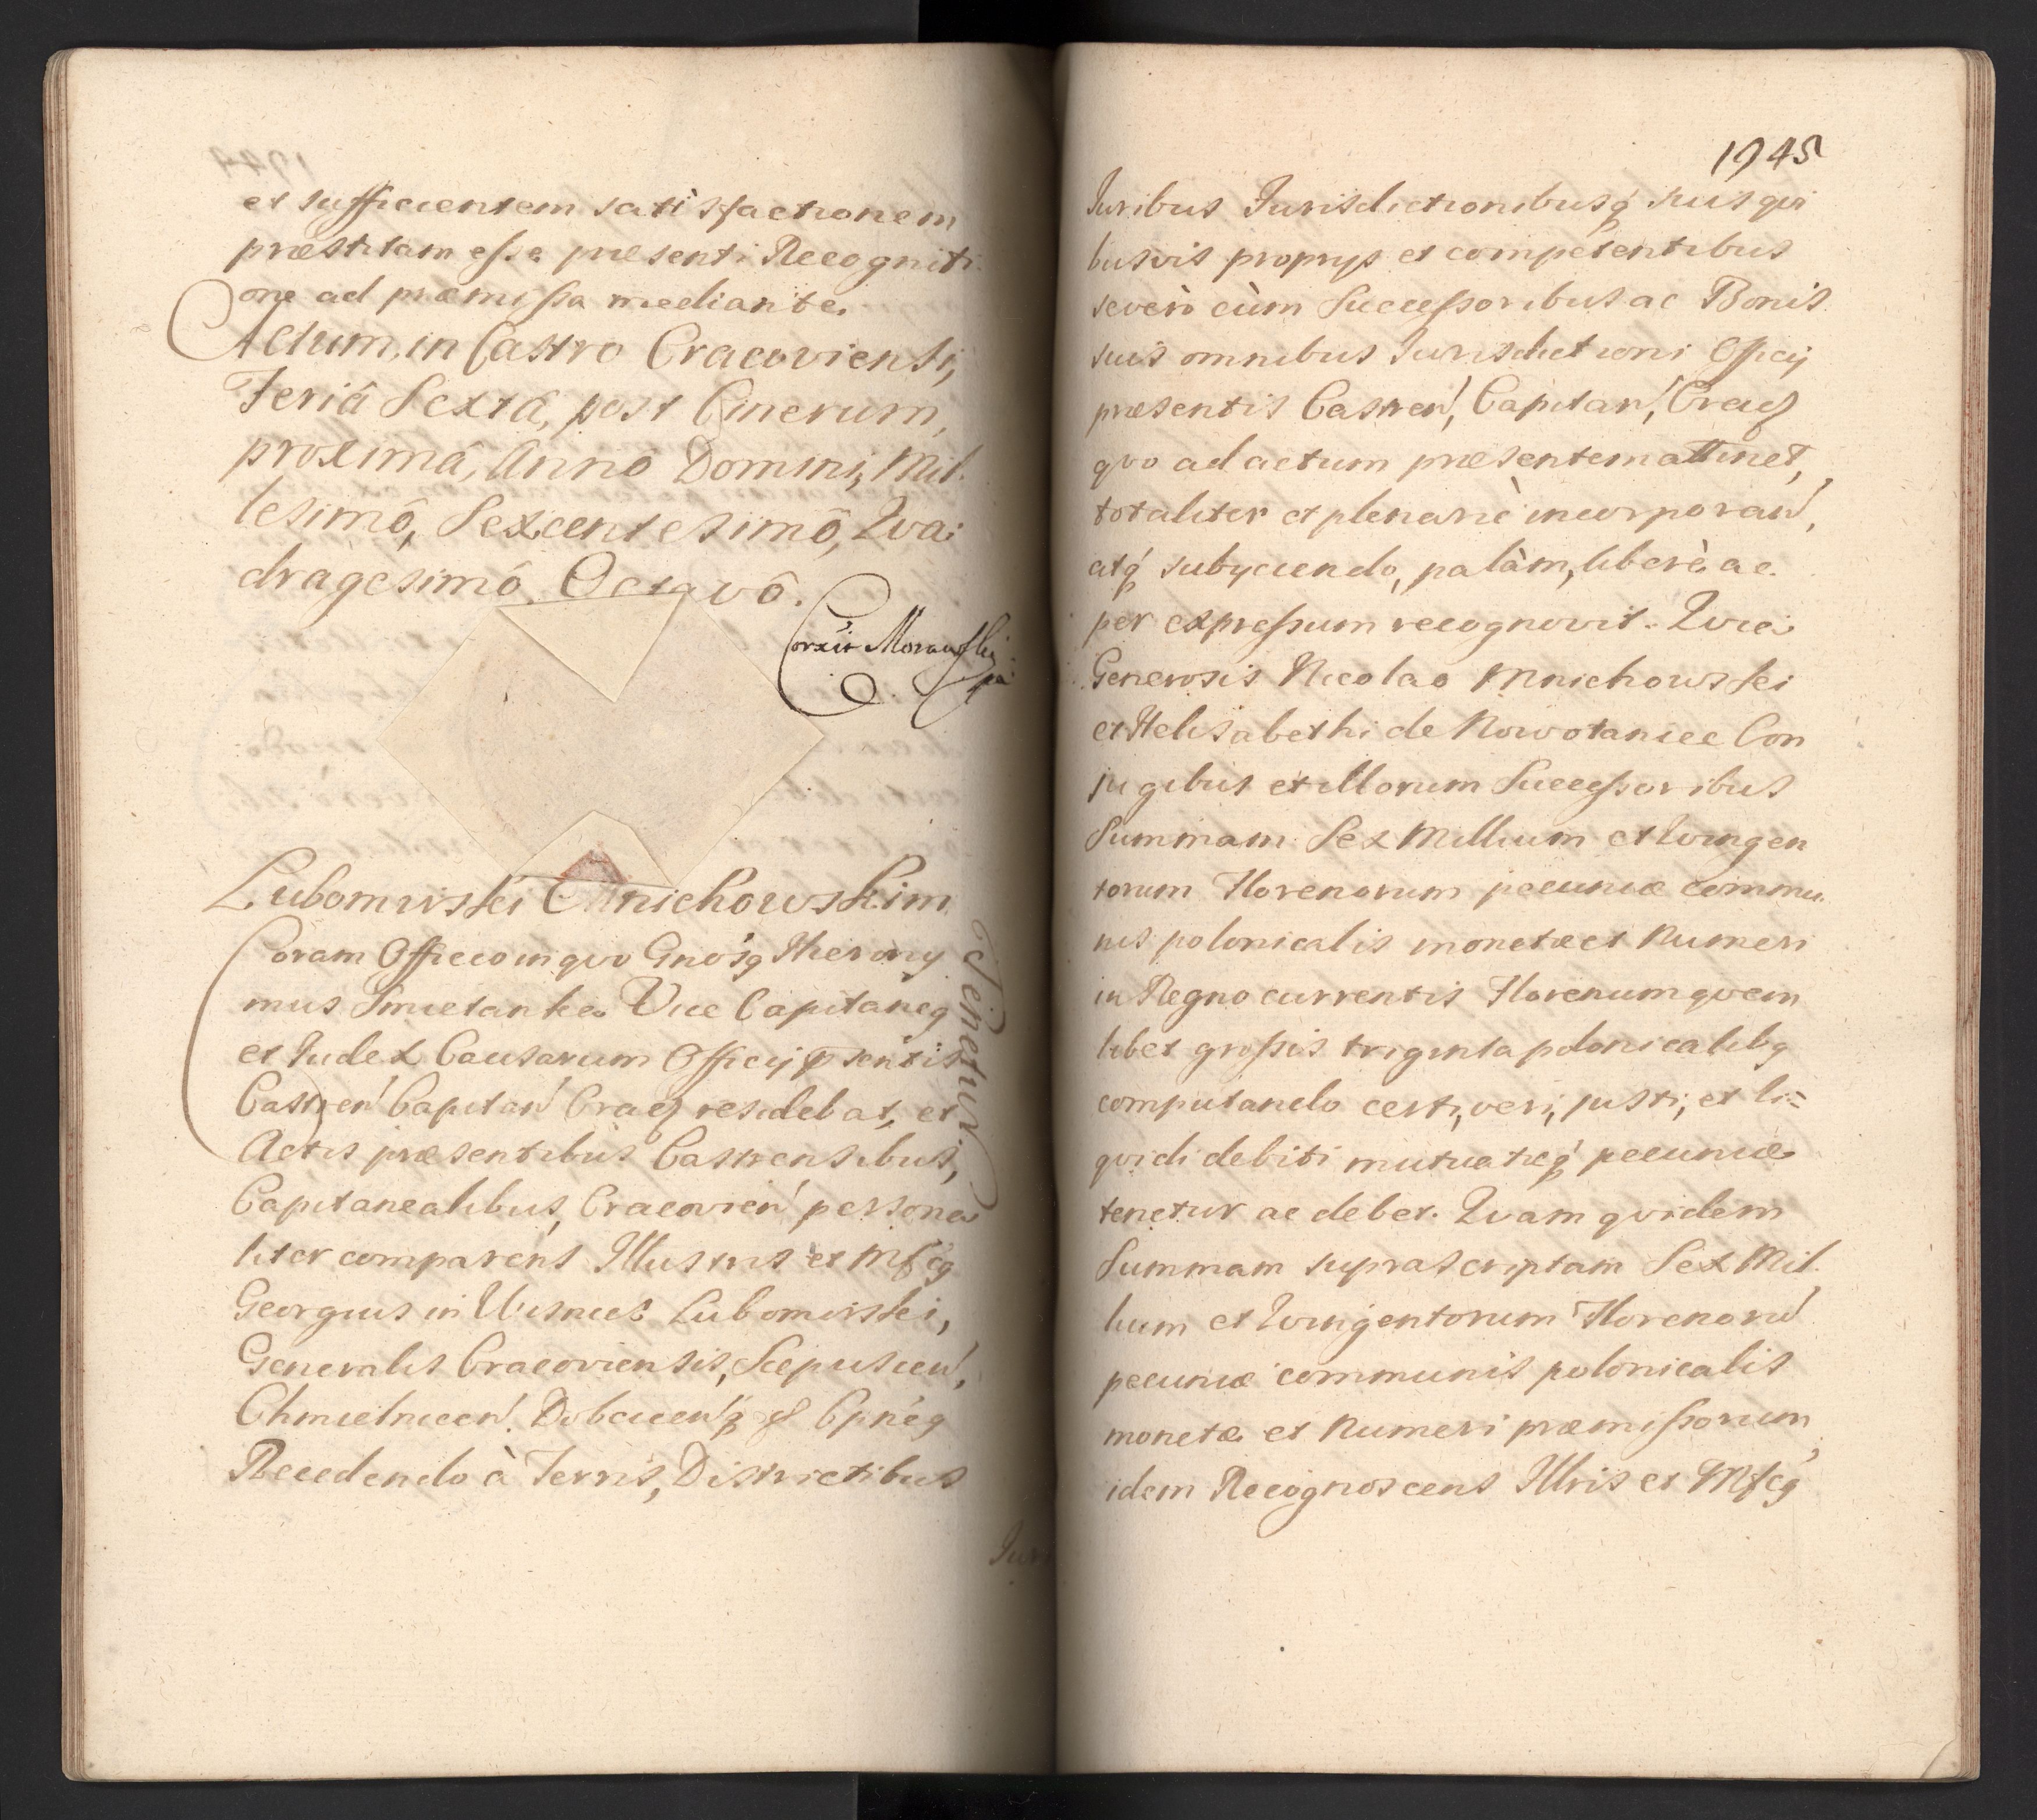 et sufficientem satisfactionem
præstitam esse præsenti Recogniti
one ad præmissa mediante.
Actum, in Castro Cracoviensi,
Feriâ Sextâ, post Cinerum,
proximâ, Annô Domini, Mil
lesimô, Sexcentesimô, Qva:
dragesimô Octavô.
Corxit Morawski
Lubomirskei Mnichowskim
Tenetur
Coram Officio in qvo Gnosq Hierony
mus Smietanka Vice Capitaneq
et Judex Causarum Officij psentis
Castren Capitan Crac residebat, et
Actis præsentibus Castrensibus,
Capitanealibus, Cracovien persona
liter comparens Illustris et Mfcq
Georgius in Wisnicz Lubomirskei,
Generalis Cracoviensis, Scepusien,
Chmielnicen Dobcicenq Cpneq
Recedendo à Terris, Districtibus
Juri
1945
Juribus Jurisdictionibusq suis qvi
busvis proprys et competentibus
severò cùm Successoribus ac Bonis
suis omnibus Jurisdictioni Officij
præsentis Castren, Capitan, Crac
qvo ad actum præsentem attinet,
totaliter et plenariè incorporan,
atq subyciendo, palàm, liberè ac
per expressum recognovit. Qvia
Generosis Nicolao Mnichowskei
et Helisabethi de Nowotaniec Con
jugibus et illorum Successoribus
Summam Sex Millium et Qvingen
torum Florenorum pecuniæ commu
nis polonicalis monetæ et Numeri
in Regno currentis Florenum qvem
libet grossis triginta polonicalibq
computando certi, veri, justi, et li=
qvidi debiti mutuatæq pecuniæ
tenetur ac debet. Qvam qvidem
Summam suprascriptam Sex Mil
lium et Qvingentorum Florenoru
pecuniæ communis polonicalis
monetæ et Numeri præmissorum,
idem Recognoscens Illris et Mfcq